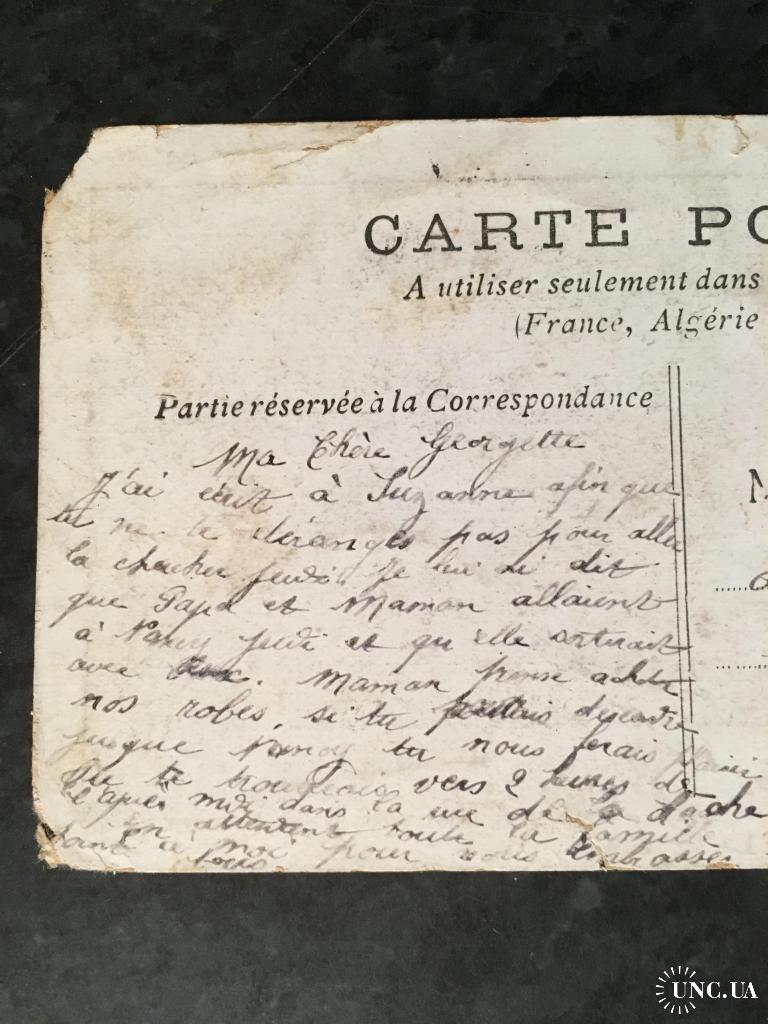 CARTE PO
A utiliser seulement dans
(France, Algérie
Partie réservée à la Correspondance
Ma Chère Georgette
J'ai écrit à Suzanne afin que
tu ne te déranges pas pour aller
la chercher jeudi. Je lui ai dit
que Papa et Maman allaient
à Nancy jeudi et qu'elle sortirait
avec eux. Maman pense acheter
nos robes, si tu descendre
jusque Nancy tu nous ferais plaisir
tu te trouverais vers 2 heures de
l'après midi dans la rue de la
en attendant toute la famille
joint à moi pour vous embrasser
UNC.UA